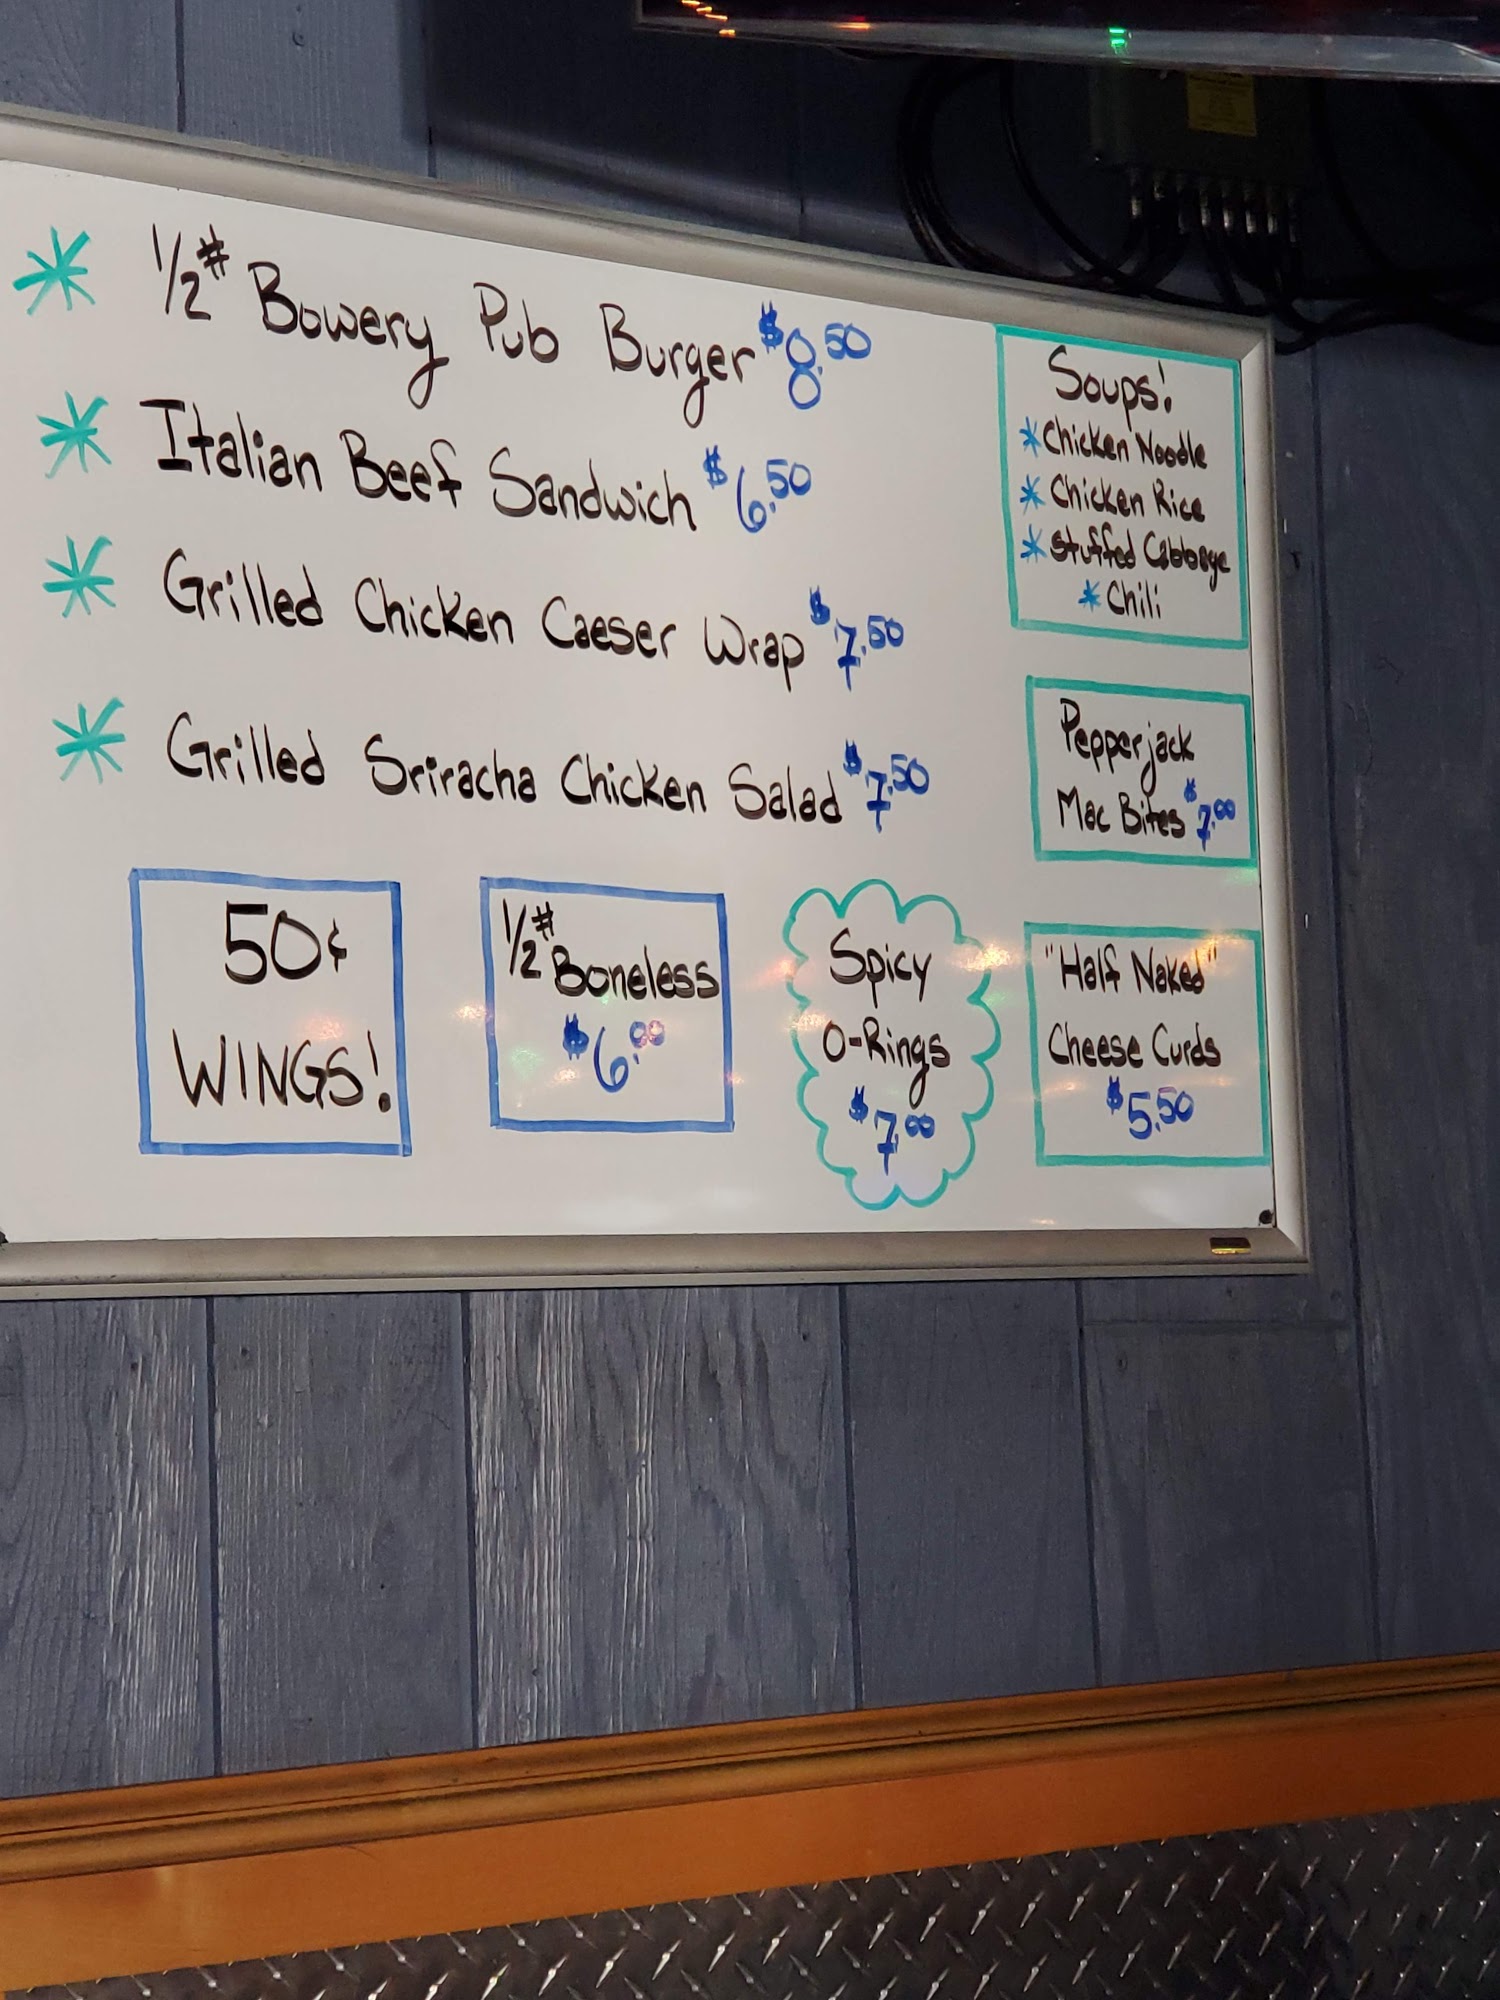 * 1/2# Bowery Pub Burger $8.50
* Italian Beef Sandwich $6.50
* Grilled Chicken Caeser Wrap $7.50
* Grilled Sriracha Chicken Salad $7.50
Soups!
* Chicken Noodle
* Chicken Rice
* Stuffed Cabbage
* Chili
Pepperjack
Mac Bites $7.00
50¢
WINGS!
1/2# Boneless
$6.00
Spicy
O-Rings
$7.00
"Half Naked"
Cheese Curds
$5.50